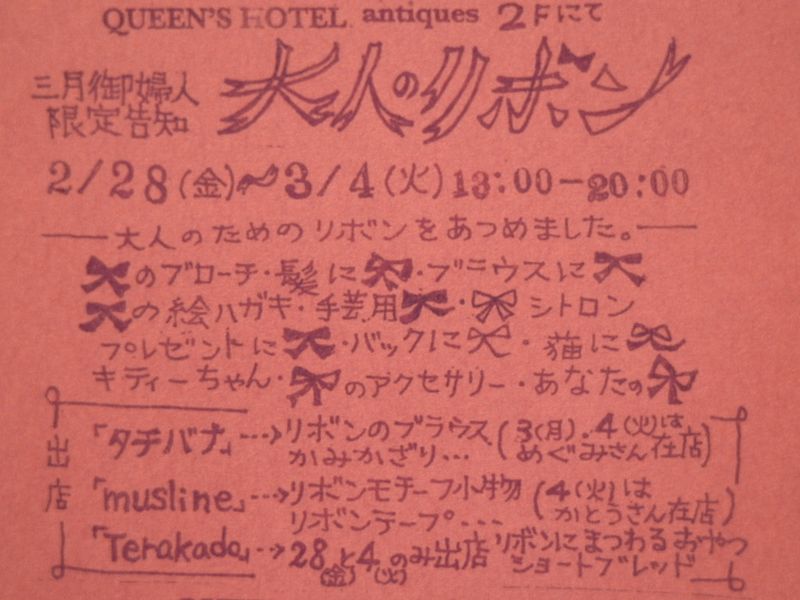 QUEEN'S HOTEL antiques 2Fにて
三月御婦人
限定告知
大人のリボン
2/28(金)〜3/4(火)13:00-20:00
大人のためのリボンをあつめました。
のブローチ・髪に・ブラウスに
の絵ハガキ・手芸用・シトロン
プレゼントに・バックに・猫に
キティーちゃん・のアクセサリー・あなたの
出店
「タチバナ」…→リボンのブラウス(3(月).4(火)は
かみかざり… めぐみさん在店)
「musline」…→リボンモチーフ小物(4(火)は
リボンテープ… かとうさん在店)
「Terakado」…→28(金)と4(火)のみ出店 リボンにまつわるおやつ
ショートブレッド